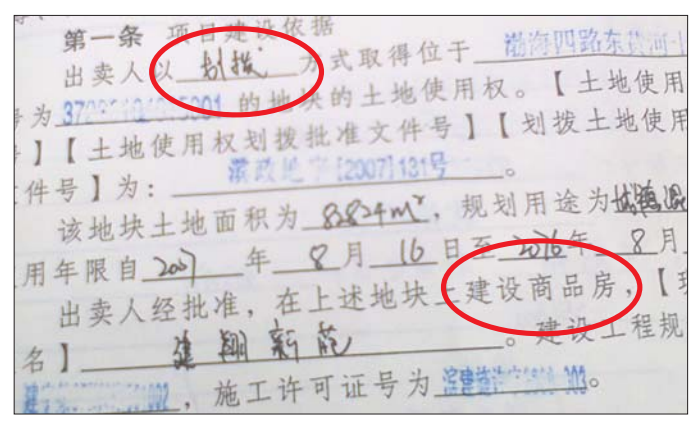 第一条 项目建设依据
出卖人以 划拨 方式取得位于 渤海四路东 河
号为 37 001 的地块的土地使用权。【土地使用
】【土地使用权划拨批准文件号】【划拨土地使用
件号】为: 滨政地字[2007]131号。
该地块土地面积为 8824m²,规划用途为城镇
用年限自 2007 年 8月 16 日至 2076年 8月
出卖人经批准,在上述地块上建设商品房,【现
名】 建翔新苑 。建设工程规
002,施工许可证号为 滨建施 303。